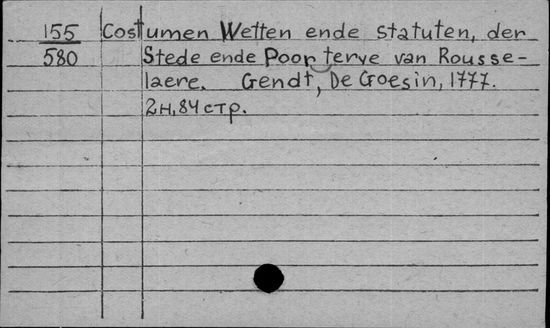 155 Costumen Wetten ende statuten, der
580 Stede ende Poorterye van Rousse-
laere. Gendt, De Goesin, 1777.
2н, 84 стр.